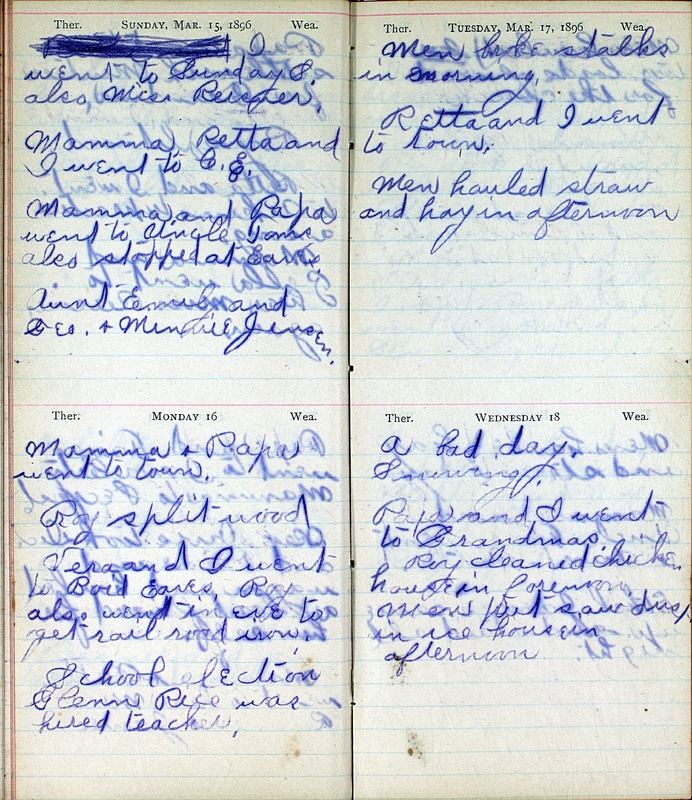 Ther. SUNDAY, MAR. 15, 1896 Wea.
I
went to Sunday S.
also, Miss Reisner.
Mamma, Retta and
I went to C. E.
Mamma, and Papa
went to Uncle Toms
also stopped at Earvs.
Aunt Emily and
Geo. + Minnie Jensen.
Ther. MONDAY 16 Wea.
Mamma + Papa
went to town.
Roy split wood
Vera and I went
to Boid Eaves. Roy
also went in eve to
get rail road iron.
School election
Glenn Rice was
hired teacher.
Ther. TUESDAY, MAR. 17, 1896 Wea.
Men broke stalks
in morning.
Retta and I went
to town.
Men hauled straw
and hay in afternoon
Ther. WEDNESDAY 18 Wea.
A bad day.
Snowing.
Papa and I went
to Grandmas.
Roy cleaned chicken
house in forenoon.
Men put saw dust
in ice house in
afternoon